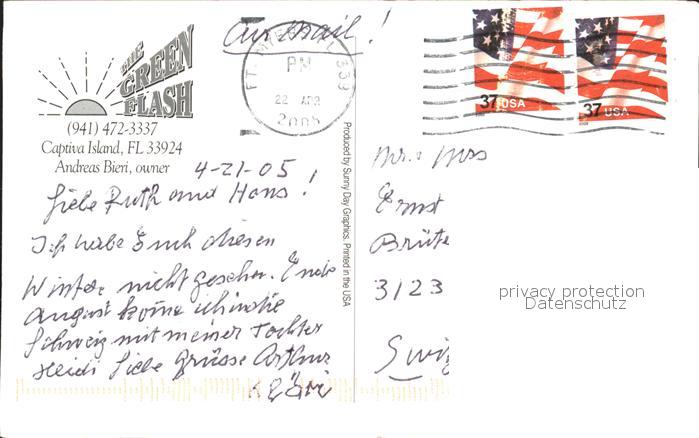 Air Mail!
THE
GREEN
FLASH
(941) 472-3337
Captiva Island, FL 33924
Andreas Bieri, owner
FT. MYERS FL 339
PM
22 APR
2005
37 USA
37 USA
4-21-05
Liebe Ruth und Hans!
Ich habe Euch diesen
Winter nicht gesehen. Ende
August kome ich in die
Schweiz mit meiner Tochter
Heidi Liebe Grüsse Arthur
Produced by Sunny Day Graphics. Printed in the USA
Mr. & Mrs
Ernst
Brüte
3123
Swiz
privacy protection
Datenschutz